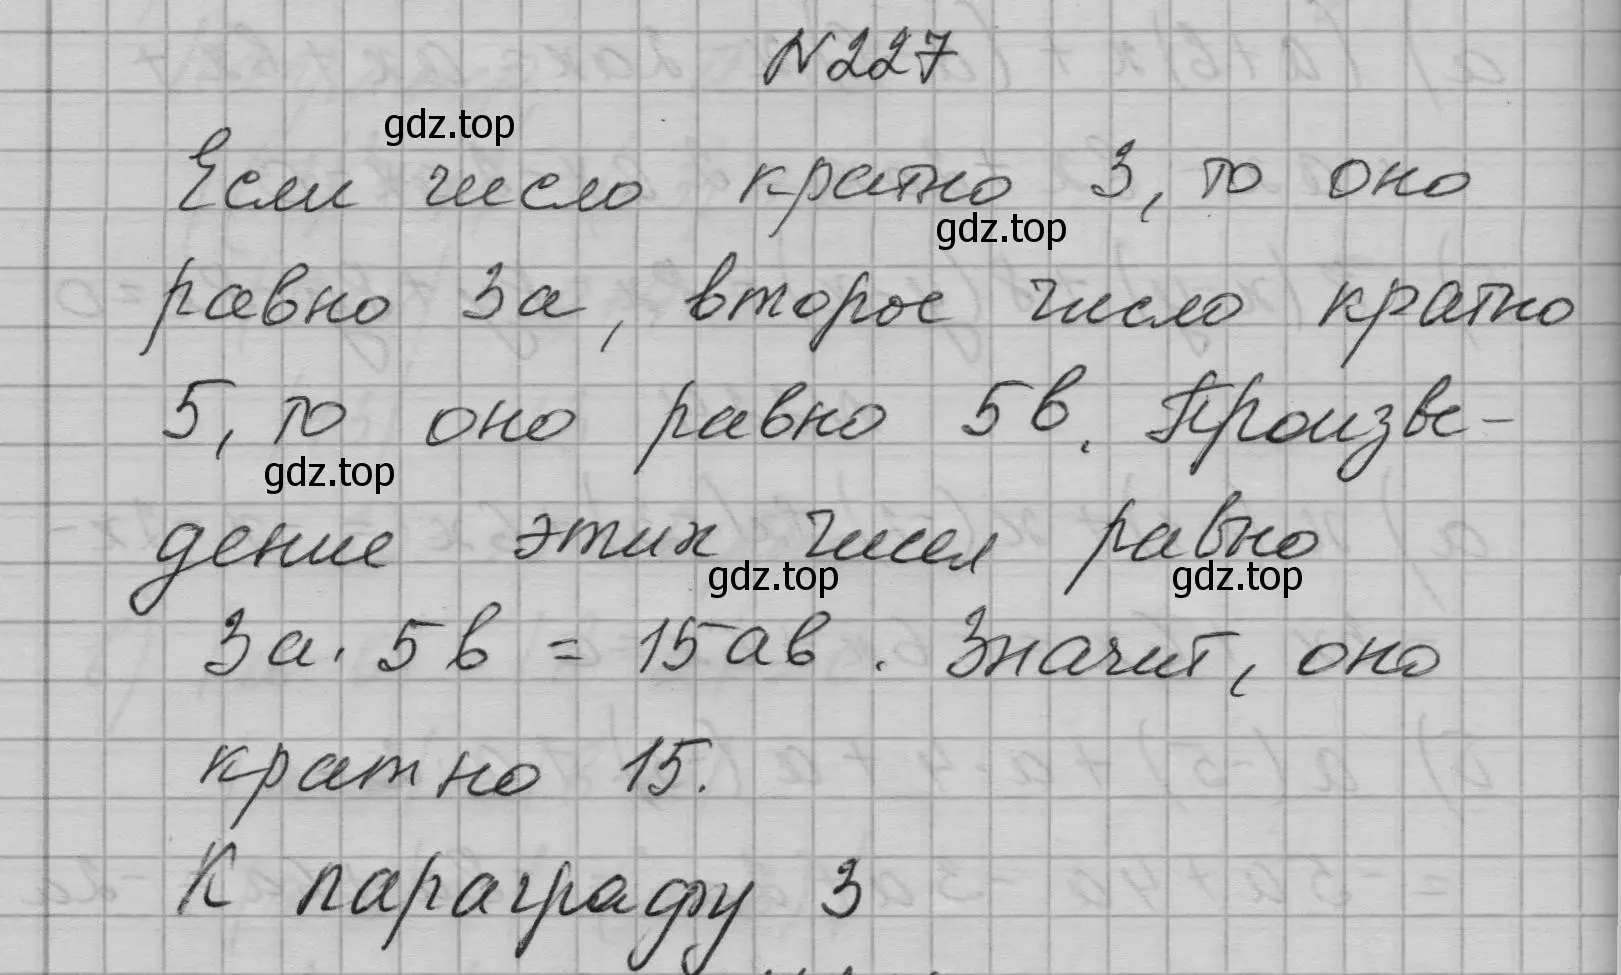 №227
gdz.top
Если число кратно 3, то оно
gdz.top
равно 3а, второе число кратно
5, то оно равно 5в. Произве-
gdz.top
дение этих чисел равно
gdz.top gdz.top
3а · 5в = 15ав. Значит, оно
кратно 15.
К параграфу 3